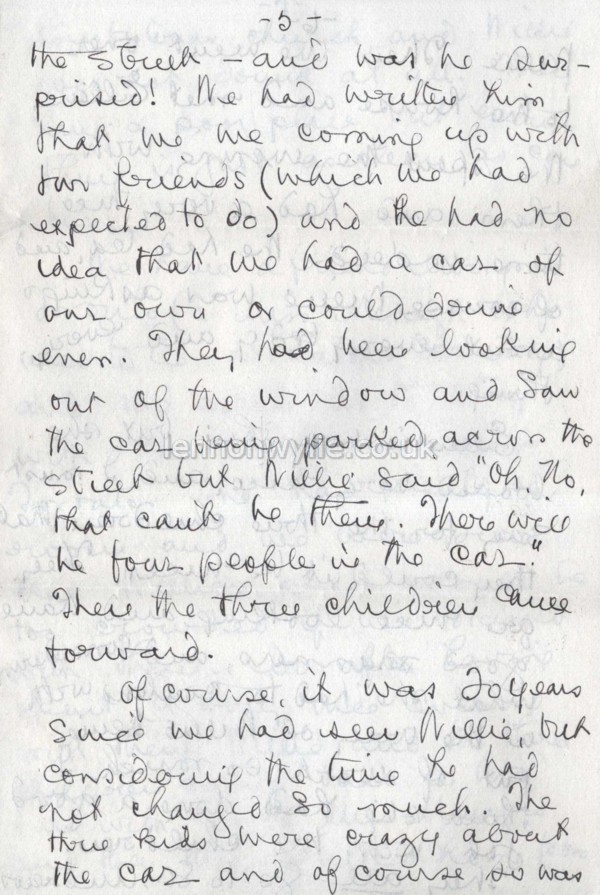 - 5 -
the street - and was he sur-
prised! We had written him
that we we coming up with
two friends (which we had
expected to do) and he had no
idea that we had a car of
our own or could drive
even. They had been looking
out of the window and saw
the car being parked across the
lennonwylie.co.uk
street but Willie said "Oh, No,
that can't be them. There will
be four people in the car."
Then the three children came
forward.
Of course, it was 20 years
since we had seen Willie but
considering the time he had
not changed so much. The
three kids were crazy about
the car and of course so was